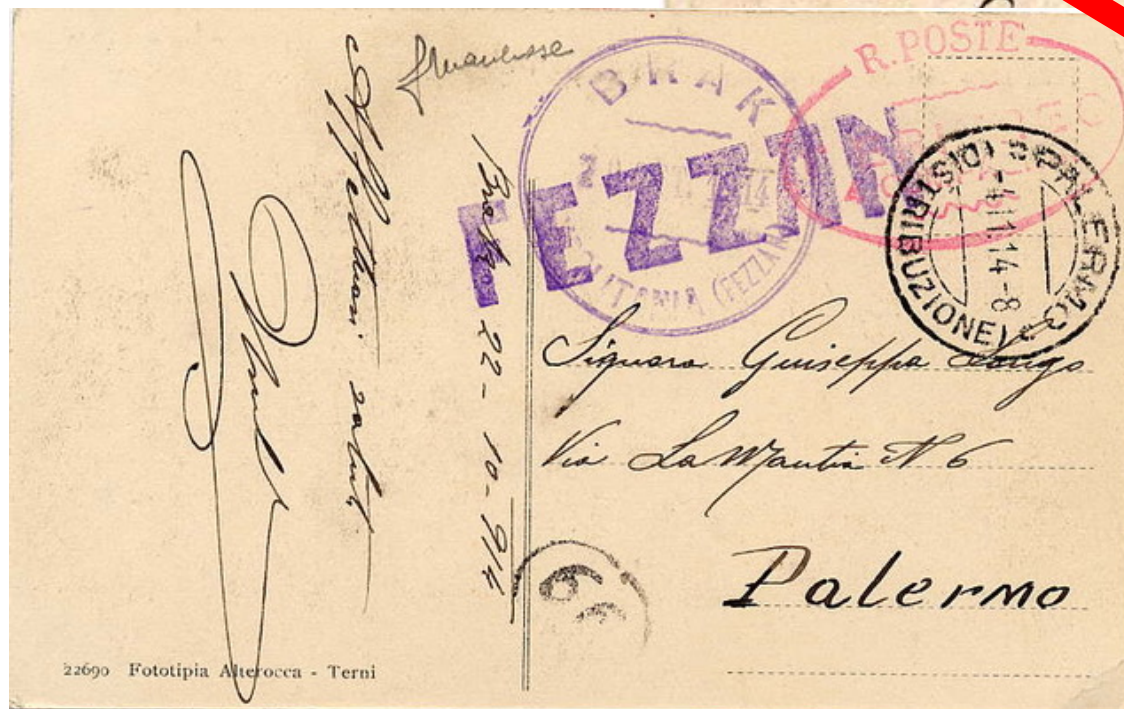 Affettuosi saluti
Brak 22-10-914
BRAK
(FEZZAN)
FEZZAN
R. POSTE
PALERMO
(DISTRIBUZIONE)
-4.11.14-8
Signora Guiseppa Longo
Via La Mantia N 6
Palermo
22690 Fototipia Alterocca - Terni